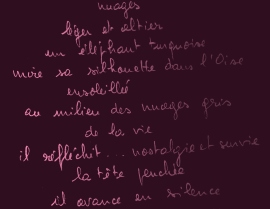 nuages
léger et altier
un éléphant turquoise
noie sa silhouette dans l'Oise
ensoleillée
au milieu des nuages gris
de la vie
il réfléchit... nostalgie et survie
la tête penchée
il avance en silence